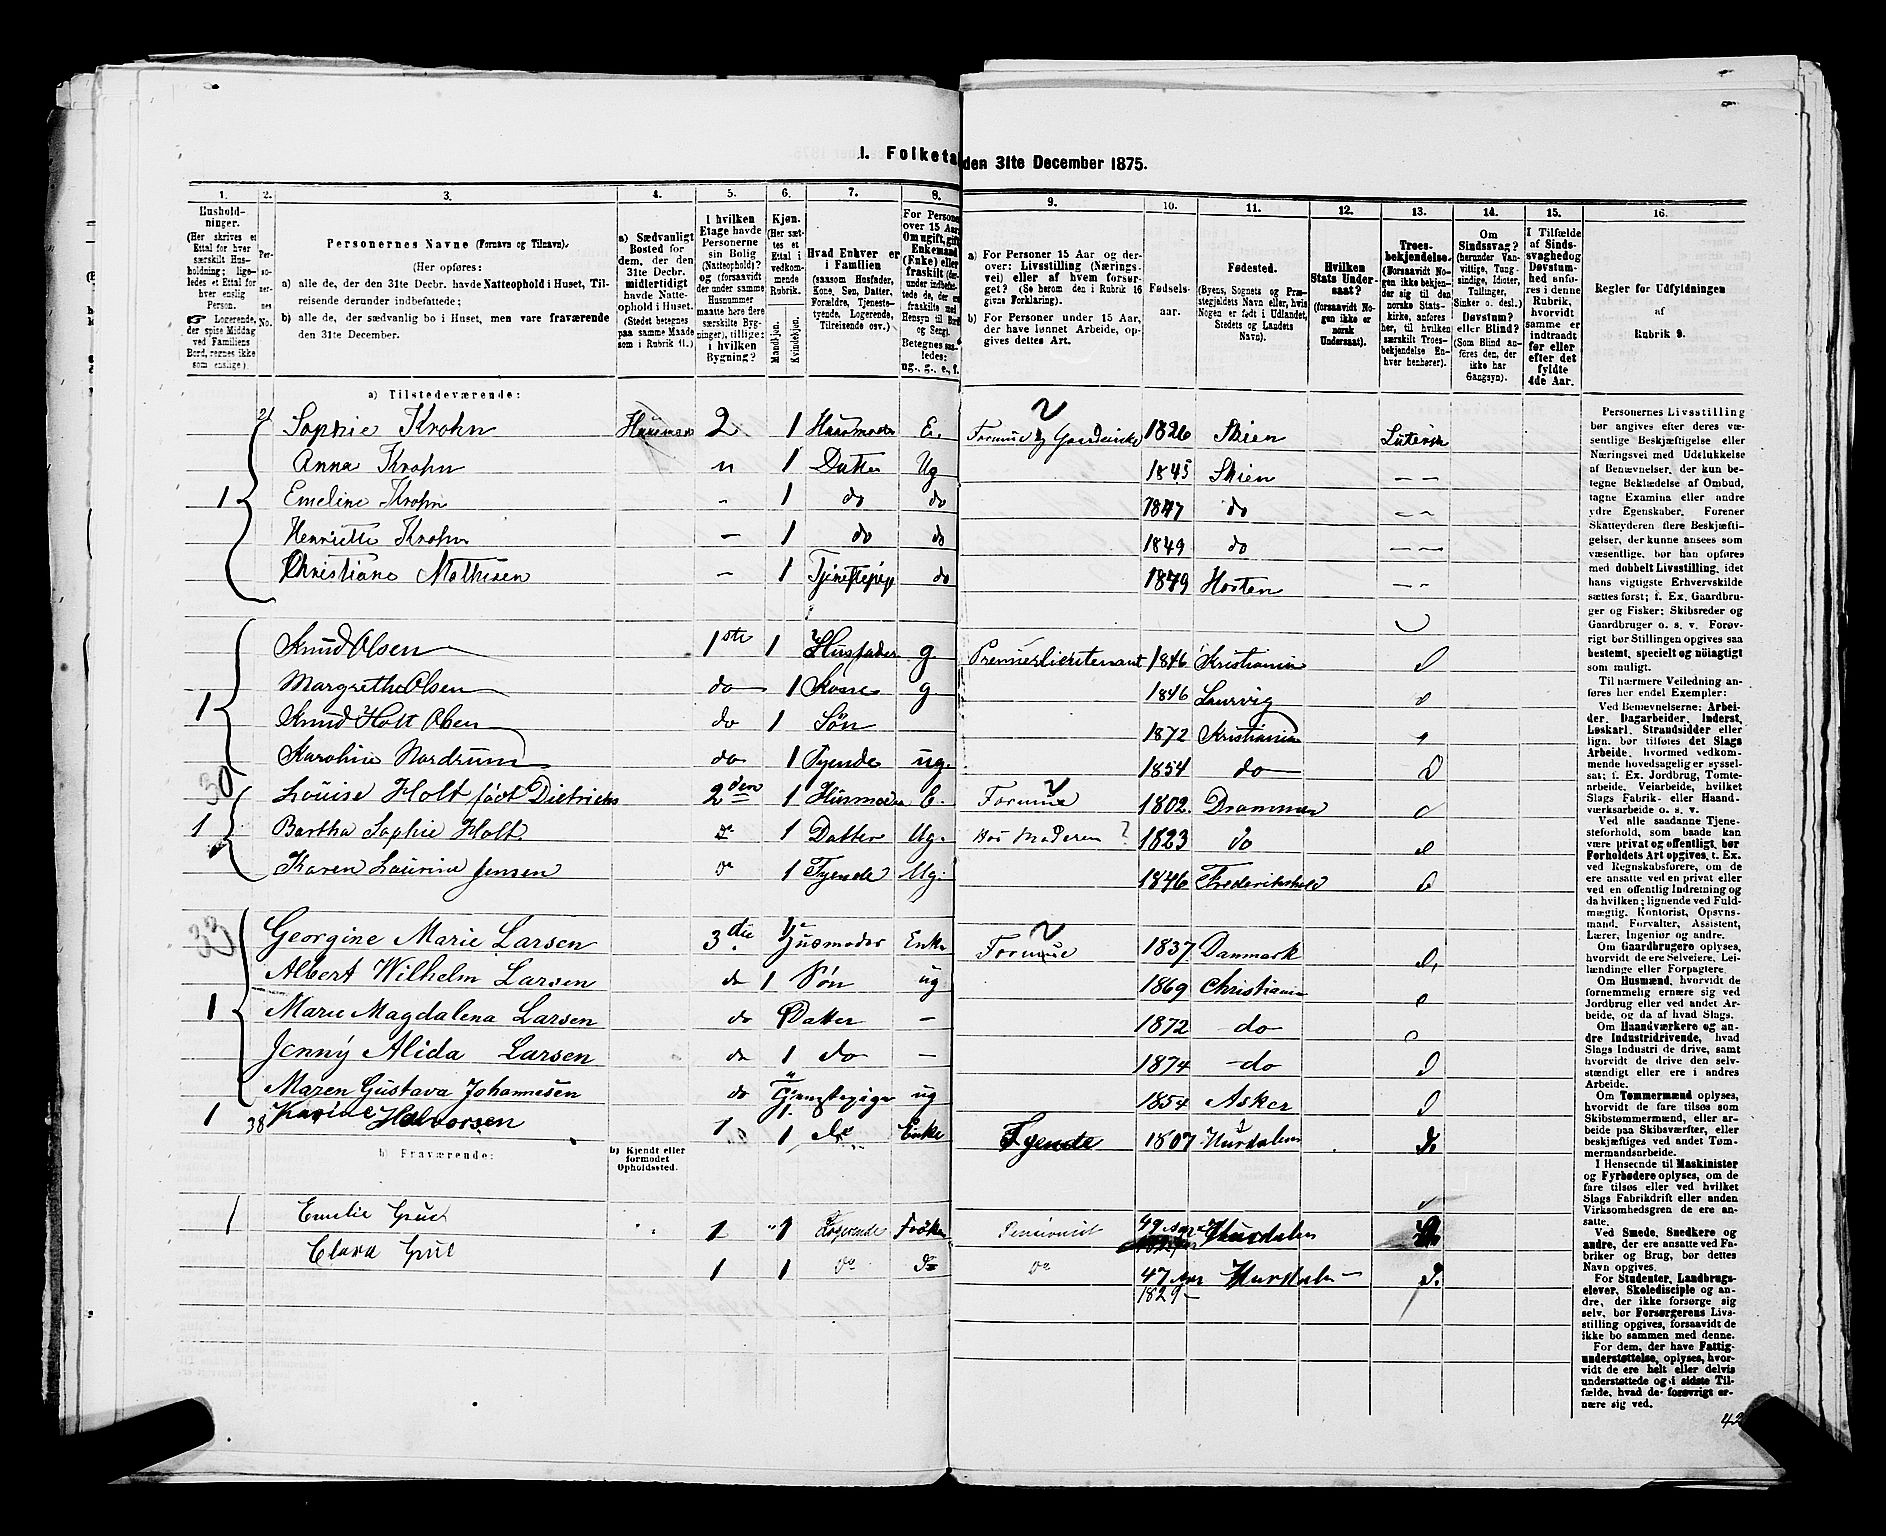 I. Folketa den 31te December 1875.
1. 2. 3. 4. 5. 6. 7. 8. 9. 10. 11. 12. 13. 14. 15. 16.
Hushold-
ninger.
(Her skrives et
Ettal for hver
særskilt Hus-
holdning; lige-
ledes et Ettal
for hver
enslig
Person.
☞ Logerende,
der spise Middag
ved Familiens
Bord, regnes ikke
som enslige).
Per-
so-
ner-
nes
No.
Personernes Navne (Fornavn og Tilnavn).
(Her opføres:
a) alle de, der den 31te Decbr. havde Natteophold i Huset, Til-
reisende derunder indbefattede;
b) alle de, der sædvanlig bo i Huset, men vare fraværende
den 31te December.
a) Sædvanligt
Bosted for
dem, der den
31te Decbr.
midlertidigt
havde Natte-
ophold i Huset.
(Stedet betegnes
paa samme Maade
som i Rubrik 11.)
I hvilken
Etage havde
Personerne
sin Bolig
(Natteophold)?
og (forsaavidt
der under samme
Husnummer
maatte høre flere
særskilte Byg-
ninger), tillige:
i hvilken
Bygning?
Kjøn.
(Her sæt-
tes et
Ettal i
vedkom-
mende
Rubrik.
Mandkjøn.
Kvindekjøn.
Hvad Enhver er
i Familien
(saasom Husfader,
Kone, Søn, Datter,
Forældre, Tjeneste-
tyende, Logerende,
Tilreisende osv.)
For Persone
over 15 Aar:
Om ugift, gift
Enkemand
(Enke) eller
fraskilt (de
ng., g., e., f.
a) For Personer 15 Aar og der-
over: Livsstilling (Nærings-
vei) eller af hvem forsør-
get? (Se herom den i Rubrik 16
givne Forklaring).
b) For Personer under 15 Aar,
der have lønnet Arbeide, op-
gives dettes Art.
Fødsels-
aar.
Fødested.
(Byens, Sognets og Præ-
stegjeldets Navn eller, hvis
Nogen er født i Udlandet,
Stedets og Landets
Navn).
Hvilken
Stats Under-
saat?
(forsaavidt No-
gen ikke er
norsk
Undersaat).
Troes-
bekjendelse.
(Forsaavidt No-
gen ikke bekjen-
der sig til den
norske Stats-
kirke, anføres
her, til hvilken
særskilt Troes-
bekjendelse En-
hver henhører).
Om
Sindssvag?
(herunder Van-
vittige, Tung-
sindige, Idioter,
Tullinger,
Sinker o. desl.)
Døvstum?
eller Blind?
(Som Blind an-
føres den, der
ikke har
Gangsyn).
I Tilfælde
af Sinds-
svaghed og
Døvstum-
hed anfø-
res i denne
Rubrik,
hvorvidt
samme er
indtraadt
før eller
efter det
fyldte
4de Aar.
Regler for Udfyldningen
af
Rubrik 9.
a) Tilstedeværende:
Sophie Krohn 2 1 Husmoder E. Formue og 1826 Skien Lutersk
Anna Krohn " 1 Datter Ug 1845 Skien – –
1 Emeline Krohn - 1 do do 1847 do – –
Henriette Krohn – 1 do do 1849 do – –
Christiane Mathisen – 1 do 1849 Horten – –
Knud Olsen 1ste 1 Husfader g Premierlieutenant 1846 Kristiania
1 Margrethe Olsen do 1 Kone g 1846 Laurvig
Knud Holt Olsen do 1 Søn 1872 Kristiania
Karoline Nordrum do 1 Tyende ug. 1854 do
30
Louise Holt født Dietrichs 2den 1 Husmoder E. Formue 1802 Drammen
1 Bartha Sophie Holt 1 Datter Ug. Hos Moderen ? 1823 do
Karen Laurine Jensen 1 Tyende Ug. 1846 Frederikshald
33
Georgine Marie Larsen 3die 1 Husmoder Enke Formue 1837 Danmark
Albert Wilhelm Larsen do 1 Søn ug 1869 Christiania
1 Marie Magdalena Larsen do Datter – 1872 – do
Jenny Alida Larsen do 1 do – 1874 – do
Maren Gustava Johannesen do Tjenestepige ug 1854 Asker
1 38 Karine Halvorsen 1 1 do Enke Tyende 1807 Hurdalen
b) Fraværende:
b) Kjendt eller
formodet
Opholdssted.
1 Emilie 1 " 1 Logerende Frøken Pensionist 49 Aar Hurdalen
Clara 1 1 do do do 47 Aar Hurdalen –
1829 –
Personernes Livsstilling
bør angives efter deres væ-
sentlige Beskjæftigelse eller
Næringsvei med Udelukkelse
af Benævnelser, der kun be-
tegne Beklædelse af Ombud,
tagne Examina eller andre
ydre Egenskaber. Forener
Skatteyderen flere Beskjæfti-
gelser, der kunne ansees som
væsentlige, bør han opføres
med dobbelt Livsstilling, idet
hans vigtigste Erhvervskilde
sættes først; f. Ex. Gaardbru-
ger og Fisker; Skibsreder og
Gaardbruger o. s. v. Forøv-
rigt bør Stillingen opgives saa
bestemt, specielt og nöiagtigt
som muligt.
Til nærmere Veiledning an-
føres her endel Exempler:
Ved Benævnelserne: Arbei-
der, Dagarbeider, Inderst,
Løskarl, Strandsidder eller
lign. bør tilføies det Slags
Arbeide, hvormed vedkom-
mende hovedsagelig er syssel-
sat; f. Ex. Jordbrug, Tomte-
arbeide, Veiarbeide, hvilket
Slags Fabrik- eller Haand-
værksarbeide o. s. v.
Ved alle saadanne Tjene-
steforhold, som baade kan
være privat og offentligt, bør
Forholdets Art opgives, t. Ex.
ved Regnskabsførere, om de
ere ansatte ved en privat eller
ved en offentlig Indretning og
da hvilken; lignende ved Fuld-
mægtig, Kontorist, Opsyns-
mand, Forvalter, Assistent,
Lærer, Ingeniør og andre.
Om Gaardbrugere oplyses,
hvorvidt de ere Selveiere, Lei-
lændinge eller Forpagtere.
Om Husmænd, hvorvidt de
fornemmelig ernære sig ved
Jordbrug eller ved andet Ar-
beide, og da af hvad Slags.
Om Haandværkere og an-
dre Industridrivende, hvad
Slags Industri de drive, samt
hvorvidt de drive den selv-
stændigt eller ere i andres
Arbeide.
Om Tømmermænd oplyses,
hvorvidt de fare tilsøs som
Skibstømmermænd, eller ar-
beide paa Skibsværfter, eller
beskjæftiges ved andet Tøm-
mermandsarbeide.
I Henseende til Maskinister
og Fyrbødere oplyses, om de
fare tilsøs eller ved hvilket
Slags Fabrikdrift eller anden
Virksomhedsgren de ere an-
satte.
Ved Smede, Snedkere og
andre, der ere ansatte ved Fa-
briker og Brug, bør dettes
Navn opgives.
For Studenter, Landbrugs-
elever, Skoledisciple og an-
dre, der ikke forsørge sig
selv, bør Forsørgerens Livs-
stilling opgives, forsaavidt de
ikke bo sammen med denne.
For dem, der have Fattig-
understøttelse, oplyses, hvor-
vidt de ere helt eller delvis
understøttede og i sidste Til-
fælde, hvad de forøvrigt er-
nære sig ved.